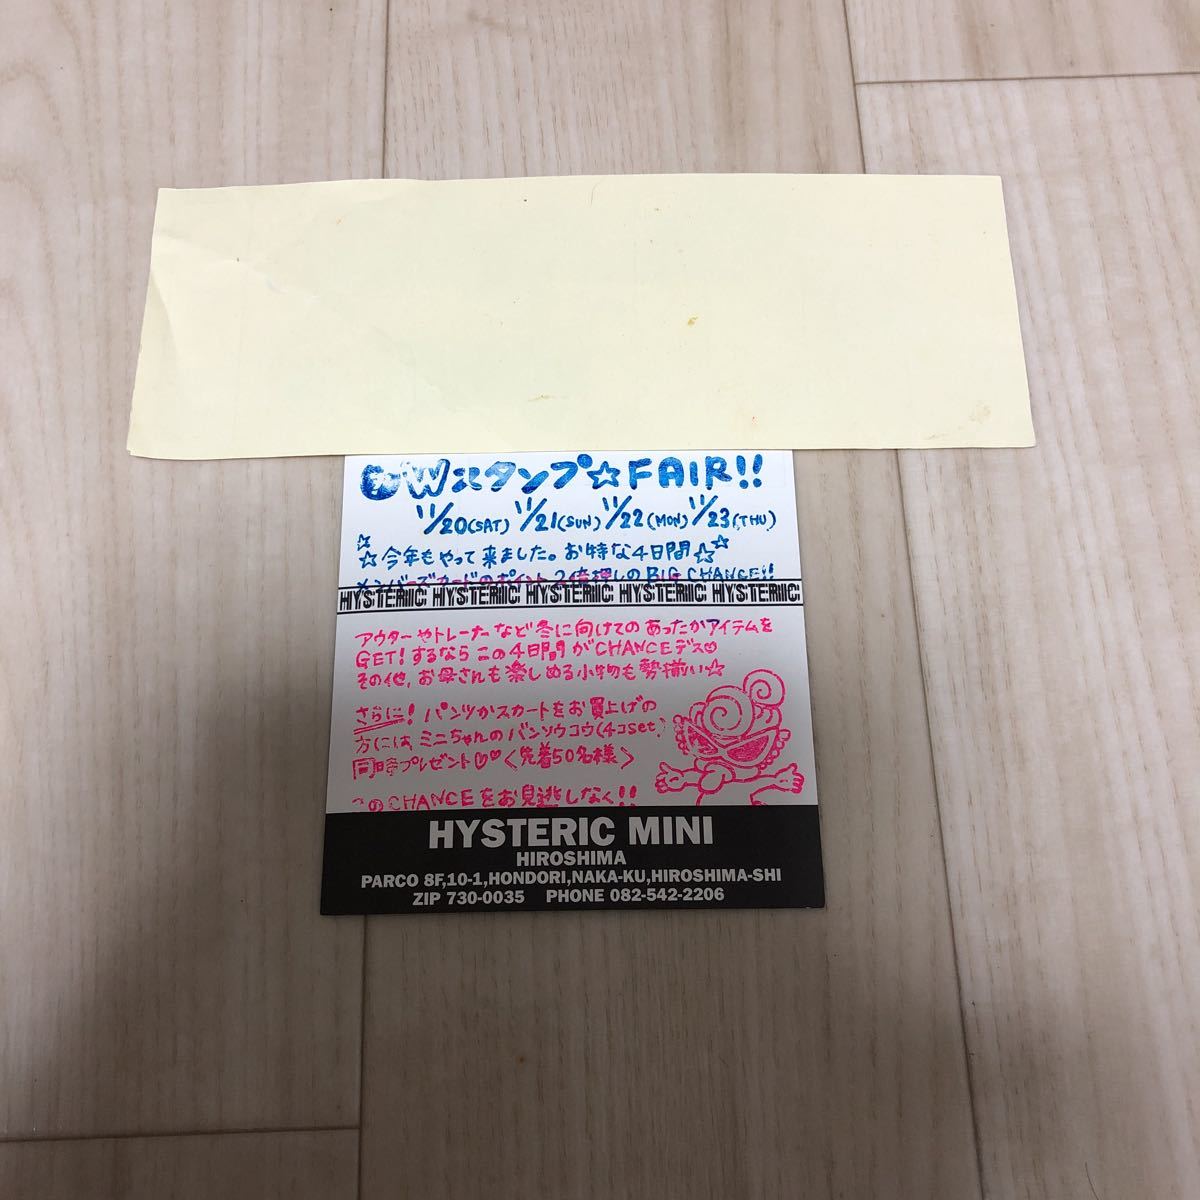 Wスタンプ☆FAIR!!
11/20(SAT) 11/21(SUN) 11/22(MON) 11/23(THU)
☆☆今年もやって来ました。お特な4日間☆☆
メンバーズカードのポイント 2倍押しのBIG CHANCE!!
HYSTERIC HYSTERIC HYSTERIC HYSTERIC HYSTERIC
アウターやトレーナーなど冬に向けてのあったかアイテムを
GET!するならこの4日間がCHANCEデス♡
その他、お母さんも楽しめる小物も勢揃い☆
さらに! パンツかスカートをお買上げの
方には、ミニちゃんのバンソウコウ(4コset)
同時プレゼント♡♡〈先着50名様〉
このCHANCEをお見逃しなく!!
HYSTERIC MINI
HIROSHIMA
PARCO 8F,10-1,HONDORI,NAKA-KU,HIROSHIMA-SHI
ZIP 730-0035 PHONE 082-542-2206